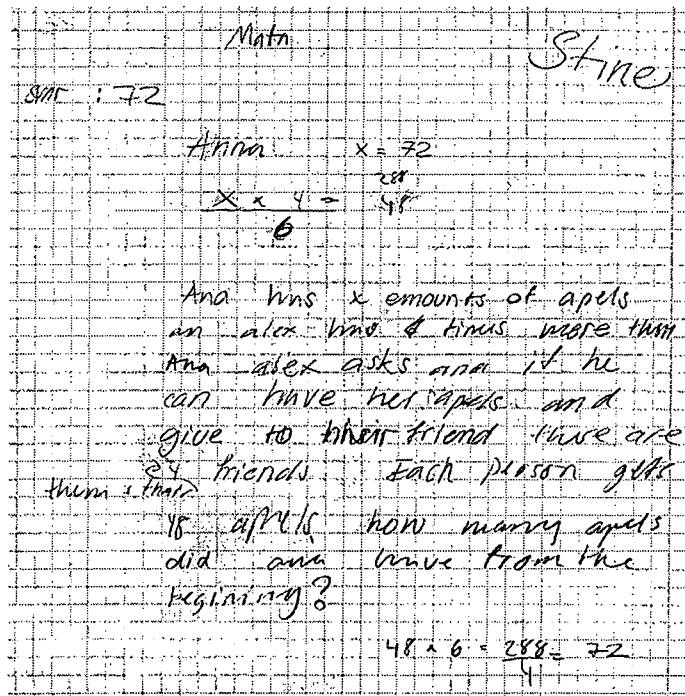 Math
Stine
: 72
Anna x = 72
288
X x 4 = 48
6
Ana hns x emounts of apels
an alex hno 4 timus more thnn
Ana alex asks ana if he
can have her apels and
give to their friend thure are
4 friends Each person gets
them
48 apels how manny apels
did ana hnve from the
begining?
48 x 6 = 288 = 72
4